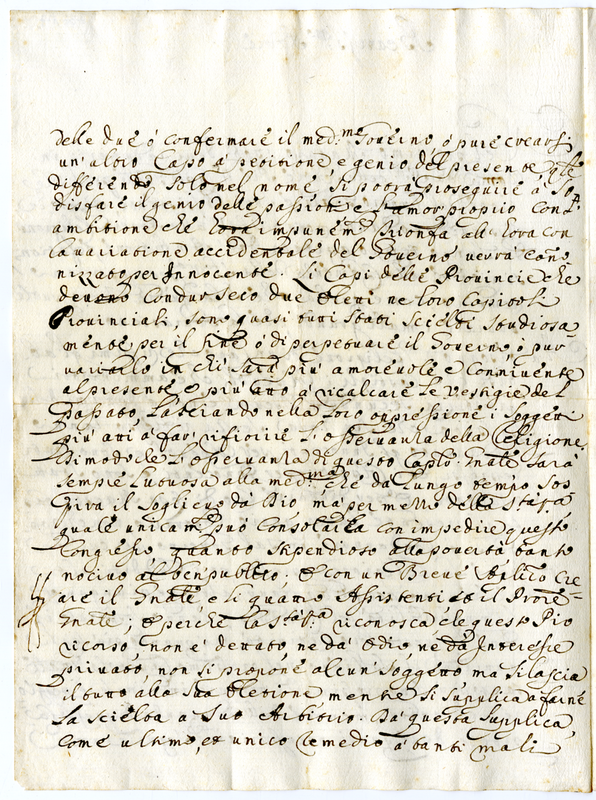 delle due ó confermare il med.mo Governo, ó pure crearsi
un'altro Capo a petitione, e genio del presente q.le
differendo solo nel nome, si potrà proseguire a so
disfare il genio delle passioni e l'amor proprio con l'
ambitione che impunem.te trionfa all' hora con
la variatione accidentale del Governo verra cano
nizzato per Innocente. Li Capi delle Provincie che
devono condur seco due eletti ne loro Capitoli
Provinciali, sono quasi tutti stati scielti studiosa
mente per il fine ó di perpetuare il Governo, ó pur
variarlo in chi sarà più amorevole e connivente
al presente e più atto a ricalcare le vestigie del
passato, lasciando nella loro oppressione i soggetti
più atti a far rifiorire l'osservanza della Religione
Di modo che l'osservanza di questo Capto. Gnale sarà
sempre luttuosa alla med.ma che da lungo tempo sos
pira il soglievo da Dio per mezzo della S.tà V.ra
quale unicam.te può consolarla con impedire questo
Congresso quanto stipendioso alla povertà tanto
nocivo al ben publico; et con un Breve Aplico cre
are il Gnale, e li quattro Assistenti et il Proře
Gnale; et perche la S.tà V.ra riconosca che questo Pio
ricorso non è dettato ne da odio ne da Interesse
privato, non si propone alcun soggetto ma si lascia
il tutto alla sua eletione mentre si supplica a farne
la scielta a suo Arbitrio. Da questa supplica,
come ultimo, et unico remedio a tanti mali